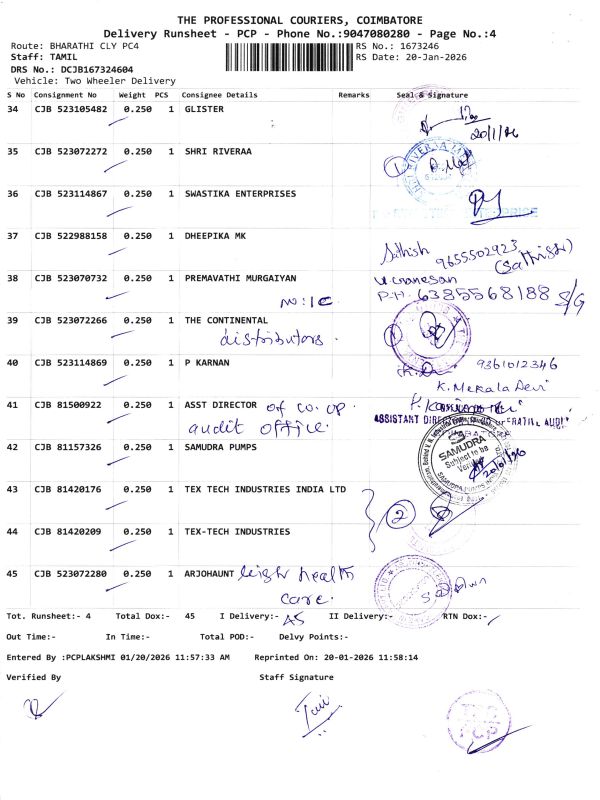 THE PROFESSIONAL COURIERS, COIMBATORE
Delivery Runsheet - PCP - Phone No.:9047080280 - Page No.:4
Route: BHARATHI CLY PC4
RS No.: 1673246
Staff: TAMIL
RS Date: 20-Jan-2026
DRS No.: DCJB167324604
Vehicle: Two Wheeler Delivery
S No Consignment No Weight PCS Consignee Details Remarks Seal & Signature
34 CJB 523105482 0.250 1 GLISTER
20/1/26
35 CJB 523072272 0.250 1 SHRI RIVERAA
1
36 CJB 523114867 0.250 1 SWASTIKA ENTERPRISES
37 CJB 522988158 0.250 1 DHEEPIKA MK
Sathish 9655502923
(Sathish)
38 CJB 523070732 0.250 1 PREMAVATHI MURGAIYAN
NO:1C
P.H. 6385568188 S/G
39 CJB 523072266 0.250 1 THE CONTINENTAL
distributors.
1
40 CJB 523114869 0.250 1 P KARNAN
9361012346
K. Mekala Devi
41 CJB 81500922 0.250 1 ASST DIRECTOR of co. op
audit office.
ASSISTANT
42 CJB 81157326 0.250 1 SAMUDRA PUMPS
SAMUDRA
Subject to be
20/01/26
43 CJB 81420176 0.250 1 TEX TECH INDUSTRIES INDIA LTD
2
44 CJB 81420209 0.250 1 TEX-TECH INDUSTRIES
45 CJB 523072280 0.250 1 ARJOHAUNT leigh health
care.
Tot. Runsheet:- 4 Total Dox:- 45 I Delivery:- 45 II Delivery:- RTN Dox:-
Out Time:- In Time:- Total POD:- Delvy Points:-
Entered By :PCPLAKSHMI 01/20/2026 11:57:33 AM Reprinted On: 20-01-2026 11:58:14
Verified By Staff Signature
PCP